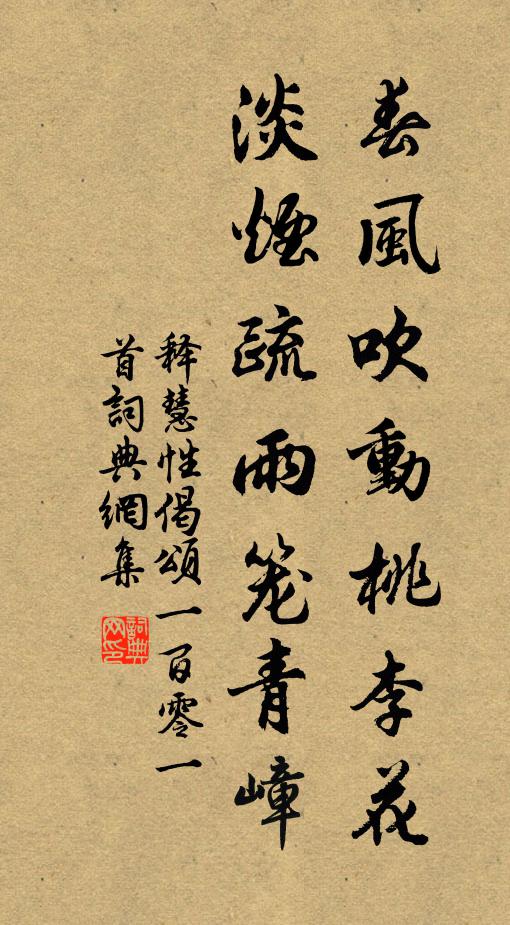 春風吹動桃李花
淡煙疏雨笼青嶂
释慧性偈頌一百零一
首詞典網集
詞典网印